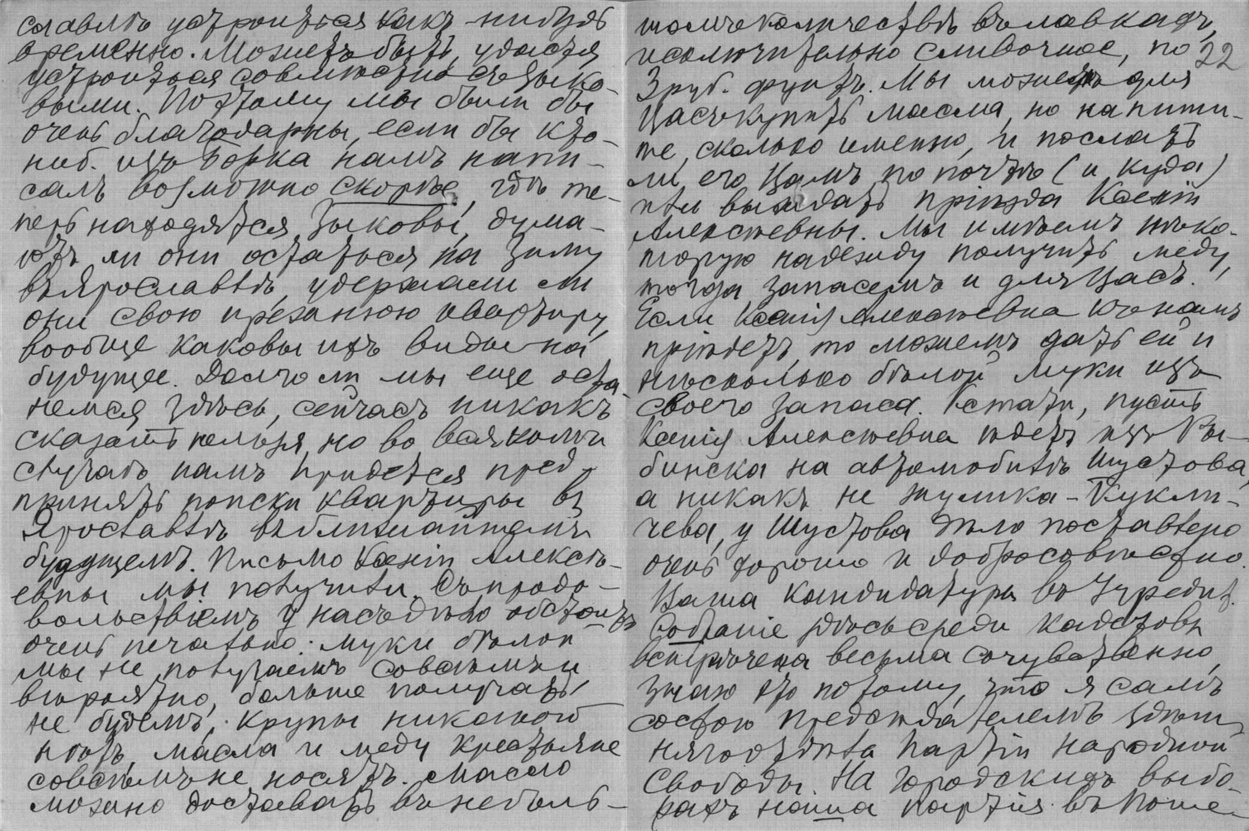 ставить устроиться какъ-нибудь
временно. Можетъ быть, удастся
устроиться совмѣстно съ Зыко-
выми. Поэтому мы были бы
очень благодарны, если бы кто-
ниб. изъ Борка намъ напи-
салъ возможно скорѣе, гдѣ те-
перь находятся Зыковы, дума-
ютъ ли они остаться на зиму
въ Ярославлѣ, удержали ли
они свою прежнюю квартиру,
вообще каковы ихъ виды на
будущее. Долго ли мы еще оста-
немся здѣсь, сейчасъ никакъ
сказать нельзя, но во всякомъ
случаѣ намъ придется пред-
принять поиски квартиры въ
Ярославлѣ въ ближайшемъ
будущемъ. Письмо Ксеніи Алексѣ-
евны мы получили. Съ продо-
вольствіемъ у насъ дѣло обстоитъ
очень печально: муки бѣлой
мы не получаемъ совсѣмъ и,
вѣроятно, больше получать
не будемъ, крупы никакой
нѣтъ, масла и меду крестьяне
совсѣмъ не носятъ. Масло
можно доставать въ неболь-
22
шомъ количествѣ въ лавкахъ,
исключительно сливочное, по
3 руб. фунтъ. Мы можемъ для
Васъ купить масла, но напиши-
те, сколько именно, и послать
ли его Вамъ по почтѣ (и куда)
или выждать пріѣзда Ксеніи
Алексѣевны. Мы имѣемъ нѣко-
торую надежду получить меду,
тогда запасемъ и для Васъ.
Если Ксенія Алексѣевна къ намъ
пріѣдетъ, то можемъ дать ей и
нѣсколько бѣлой муки изъ
своего запаса. Кстати, пусть
Ксенія Алексѣевна ѣдетъ изъ Ры-
бинска на автомобилѣ Шустова,
а никакъ не жулика-Кукли-
чева, у Шустова дѣло поставлено
очень хорошо и добросовѣстно.
Ваша кандидатура въ Учредит.
Собраніе здѣсь среди кадетовъ
встрѣчена весьма сочувственно,
знаю это потому, что я самъ
состою предсѣдателемъ здѣш-
няго отдѣла партіи Народной
Свободы. На городскихъ выбо-
рахъ наша партія въ Поше-